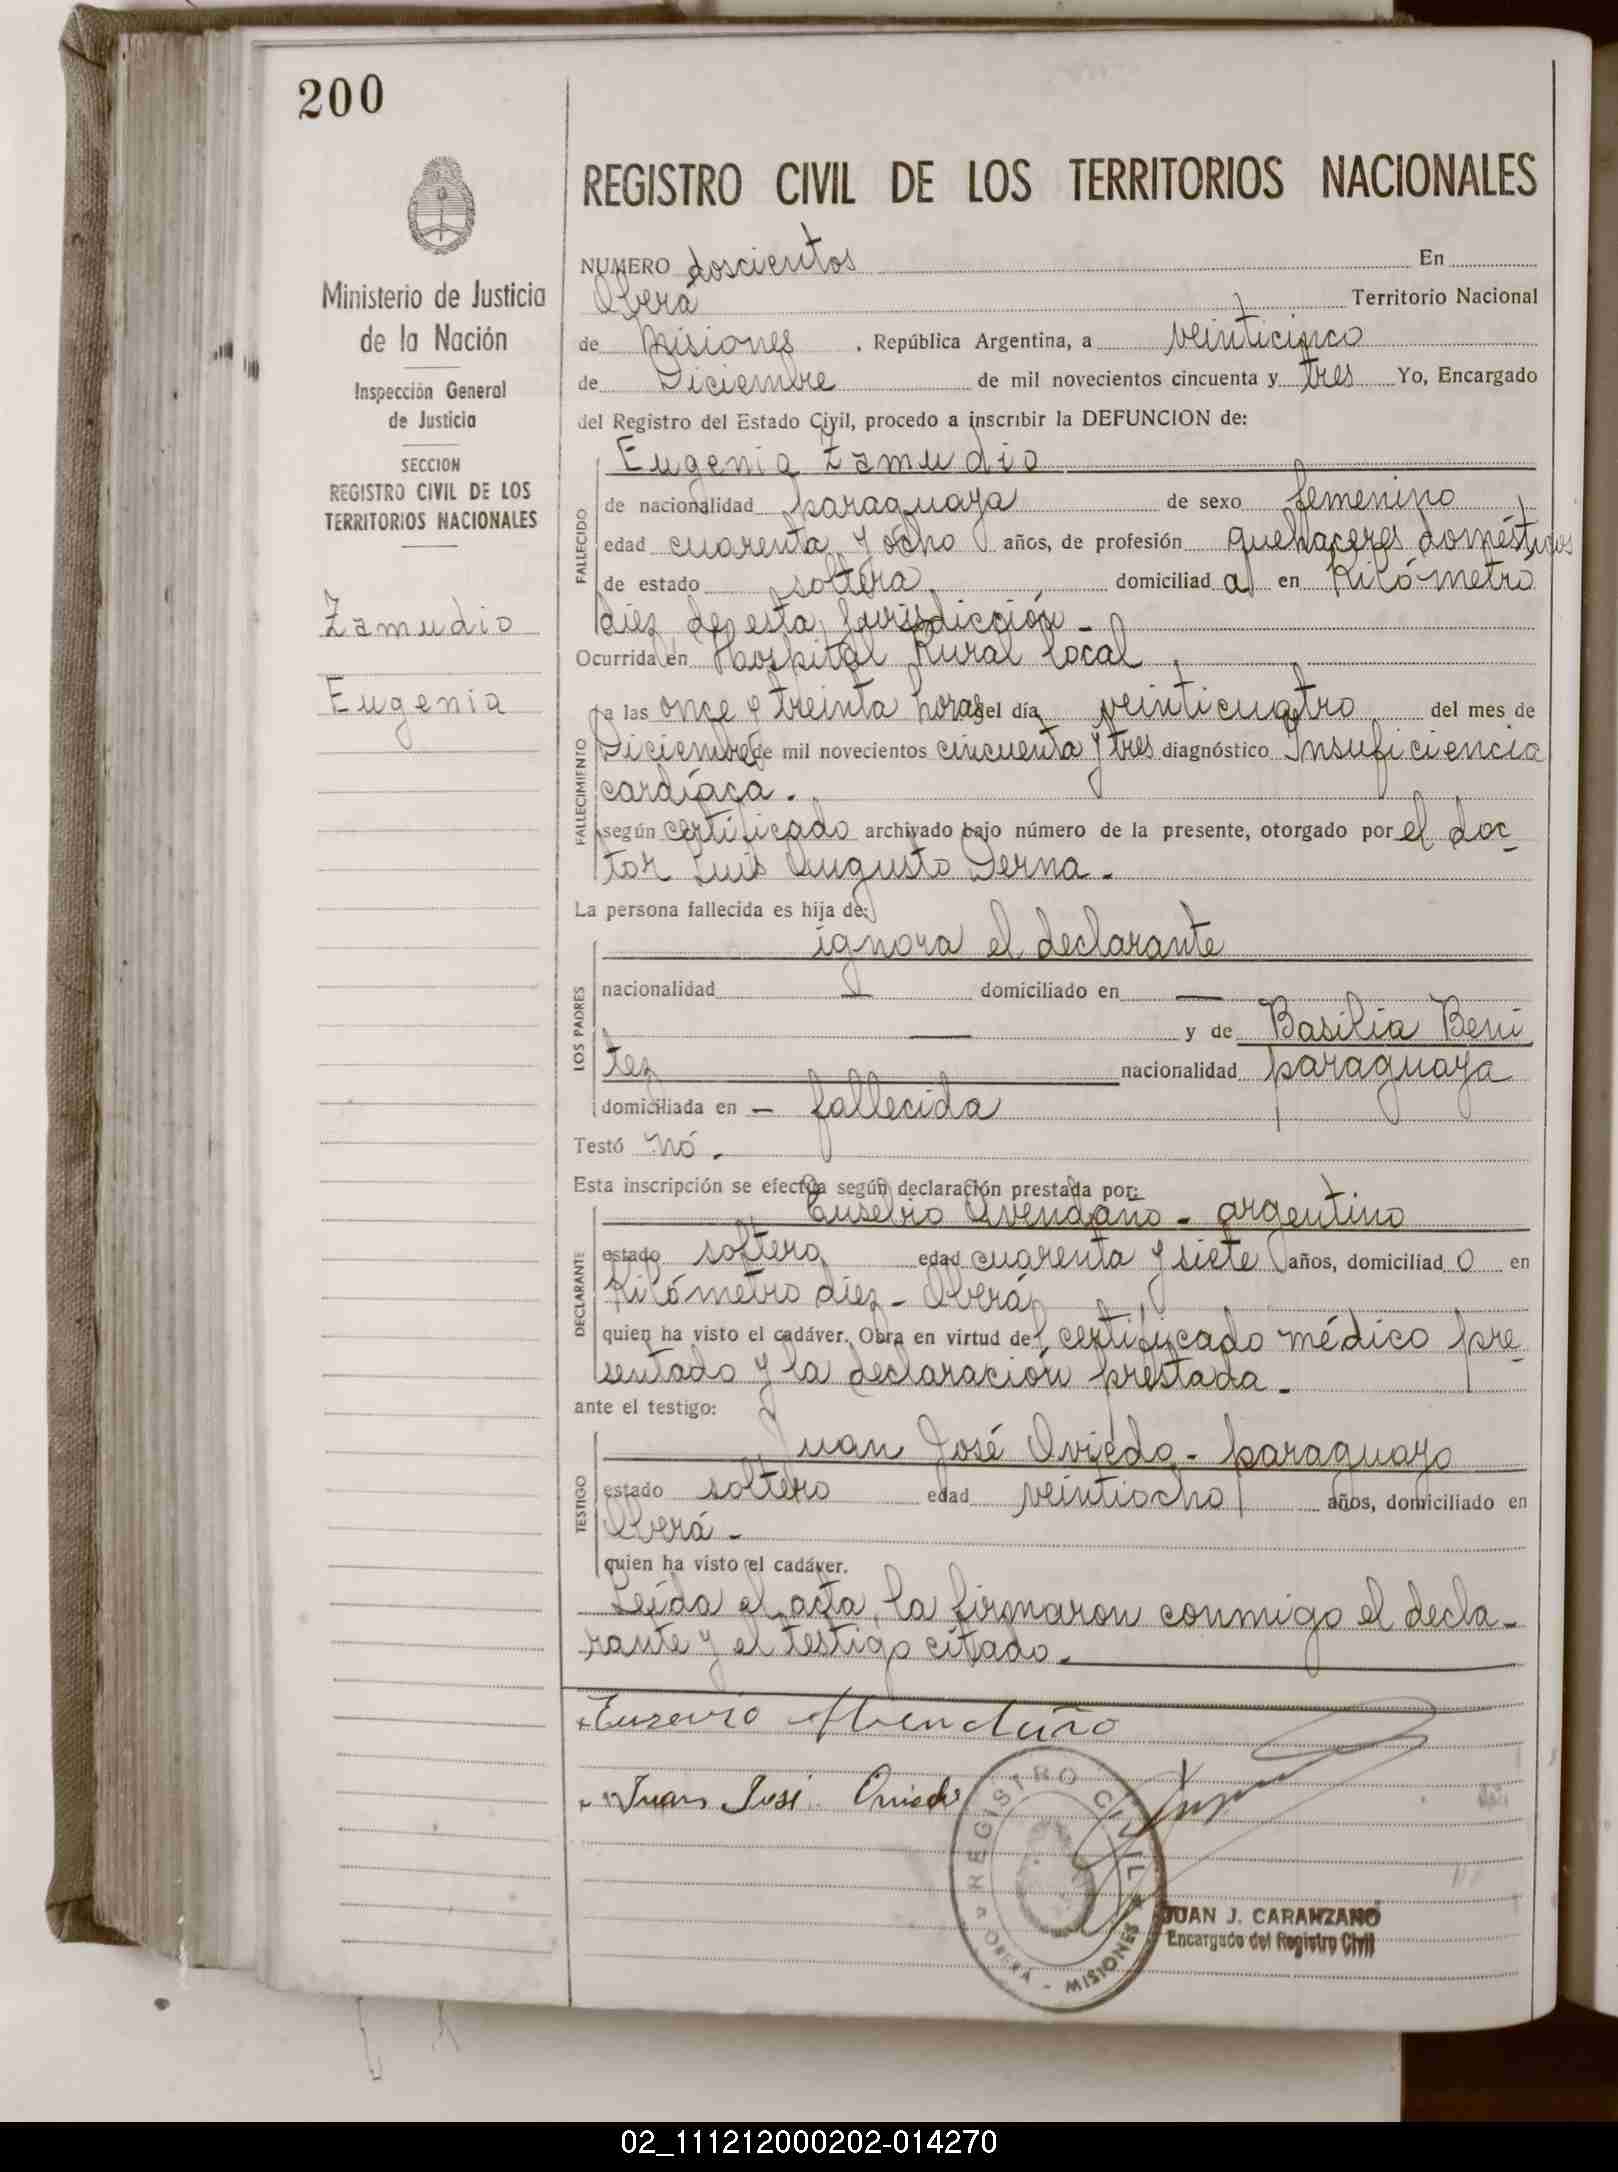 200
REGISTRO CIVIL DE LOS TERRITORIOS NACIONALES
Ministerio de Justicia
de la Nación
Inspección General
de Justicia
SECCION
REGISTRO CIVIL DE LOS
TERRITORIOS NACIONALES
Zamudio
Eugenia
NUMERO doscientos En
Oberá Territorio Nacional
de Misiones , República Argentina, a veinticinco
de Diciembre de mil novecientos cincuenta y tres Yo, Encargado
del Registro del Estado Civil, procedo a inscribir la DEFUNCION de:
FALLECIDO
Eugenia Zamudio
de nacionalidad paraguaya de sexo femenino
edad cuarenta y ocho años, de profesión quehaceres domésticos
de estado soltera domiciliad a en Kilómetro
diez de esta Jurisdicción -
Ocurrida en Hospital Rural local
FALLECIMIENTO
a las once y treinta horas del día veinticuatro del mes de
Diciembre de mil novecientos cincuenta y tres diagnóstico Insuficiencia
cardíaca.
según certificado archivado bajo número de la presente, otorgado por el doc-
tor Luis Augusto Derna.
La persona fallecida es hija de:
LOS PADRES
ignora el declarante
nacionalidad — domiciliado en —
— y de Basilia Beni
tez nacionalidad paraguaya
domiciliada en — fallecida
Testó nó.
Esta inscripción se efectúa según declaración prestada por:
DECLARANTE
Eusebio Avendaño - argentino
estado soltero edad cuarenta y siete años, domiciliad o en
Kilómetro diez - Oberá
quien ha visto el cadáver. Obra en virtud del certificado médico pre-
sentado y la declaración prestada.
ante el testigo:
TESTIGO
Juan José Oviedo - paraguayo
estado soltero edad veintiocho años, domiciliado en
Oberá -
quien ha visto el cadáver.
Leída el acta, la firmaron conmigo el decla-
rante y el testigo citado.
Euzevio Abendaño
Juan José Oviedo
REGISTRO CIVIL
OBERÁ - MISIONES
JUAN J. CARANZANO
Encargado del Registro Civil
02_111212000202-014270